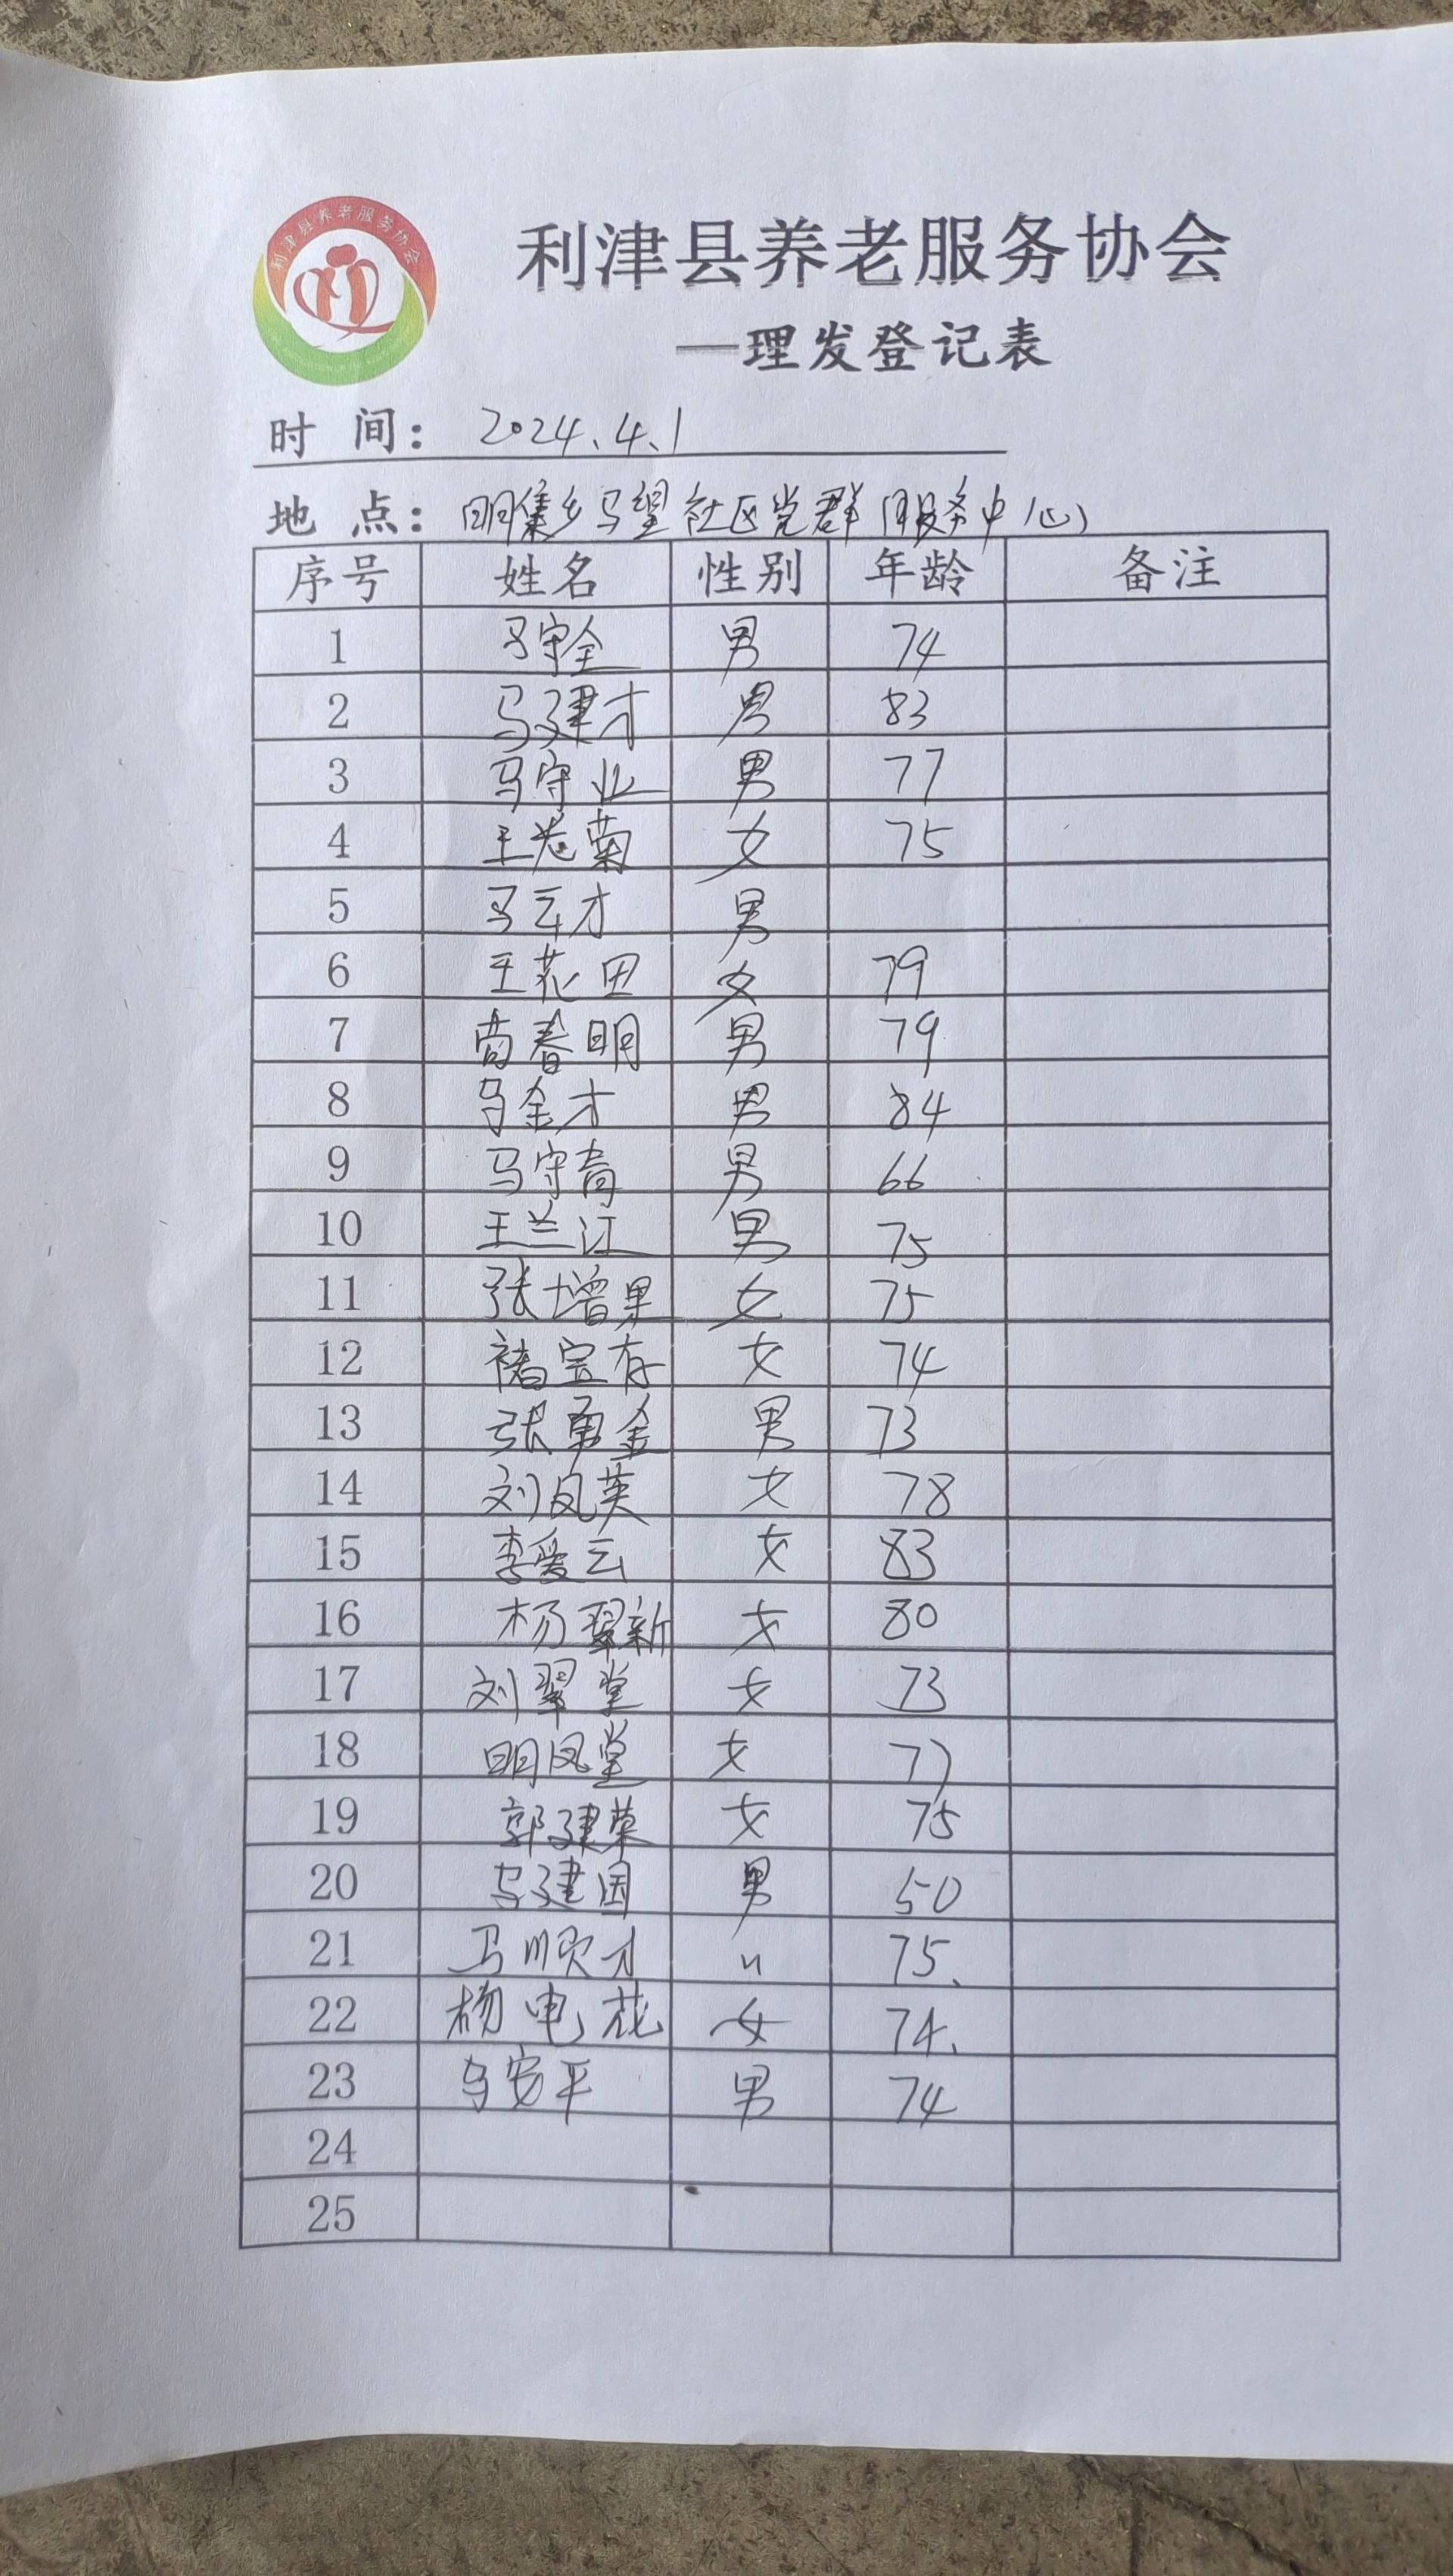 利津县养老服务协会
利津县养老服务协会
—理发登记表
时 间: 2024.4.1
地 点: 明集乡马望社区党群服务中心
序号 姓名 性别 年龄 备注
1 马守全 男 74
2 马建才 男 83
3 马守业 男 77
4 王菊 女 75
5 马云才 男
6 王花田 女 79
7 尚春明 男 79
8 马金才 男 84
9 马守 男 66
10 王兰江 男 75
11 张增果 女 75
12 褚宝存 女 74
13 张勇金 男 73
14 刘凤英 女 78
15 李爱云 女 83
16 杨翠新 女 80
17 刘翠堂 女 73
18 明凤堂 女 77
19 郭建荣 女 75
20 马建国 男 50
21 马顺才 〃 75、
22 杨电花 女 74、
23 马安平 男 74
24
25